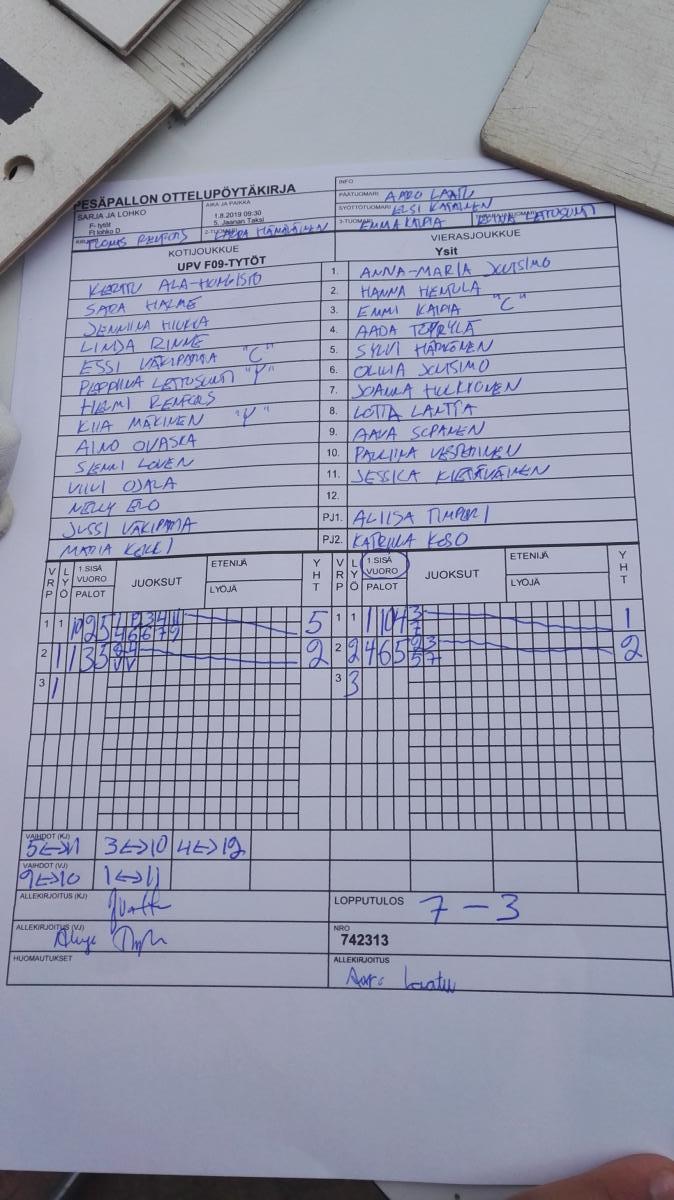 PESÄPALLON OTTELUPÖYTÄKIRJA
INFO
SARJA JA LOHKO
F- tytöt
Ft lohko D
AIKA JA PAIKKA
1.8.2019 09:30
5. Jaanan Taksi
PÄÄTUOMARI AARO LAATU
SYÖTTÖTUOMARI ELSI KATAINEN
2-TUOMARI
3-TUOMARI EMMA KAIPIA
KOTIJOUKKUE
UPV F09-TYTÖT
VIERASJOUKKUE
Ysit
KERTTU ALA-HONGISTO
1. ANNA-MARIA JUTSIMO
SARA HALME
2. HANNA HEMULA
JENNIINA HIUKKA
3. EMMI KAIPIA "C"
LINDA RINNE
4. AADA TÖYRYLÄ
ESSI VÄKIPARTA "C"
5. SYLVI HÄRKÖNEN
LETTOSUNTI "P"
6. OLIVIA JUTSIMO
HELMI RENFORS
7. JOANNA HULKKONEN
KIIA MÄKINEN "V"
8. LOTTA LANTTA
AINO OVASKA
9. AAVA SOPANEN
SIENNI LOVEN
10. PAULIINA
VIIVI OJALA
11. JESSICA KIETÄVÄINEN
NELLY ERO
12.
JUSSI VÄKIPARTA
PJ1. ALIISA TIMPERI
MARIA
PJ2. KATRIINA KESO
VRP LYÖ 1.SISÄ VUORO PALOT JUOKSUT ETENIJÄ LYÖJÄ YHT
VRP LYÖ 1.SISÄ VUORO PALOT JUOKSUT ETENIJÄ LYÖJÄ YHT
1 1 10 2 5 5
1 1 1 10 4 3 7 1
2 1 1 3 3 2
2 2 4 6 5 2 3 5 7 2
3 1
3 3
VAIHDOT (KJ)
5<->11 3<->10 4<->12
VAIHDOT (VJ)
9<->10 1<->11
ALLEKIRJOITUS (KJ)
LOPPUTULOS 7 – 3
ALLEKIRJOITUS (VJ)
NRO
742313
HUOMAUTUKSET
ALLEKIRJOITUS
Aaro Laatu